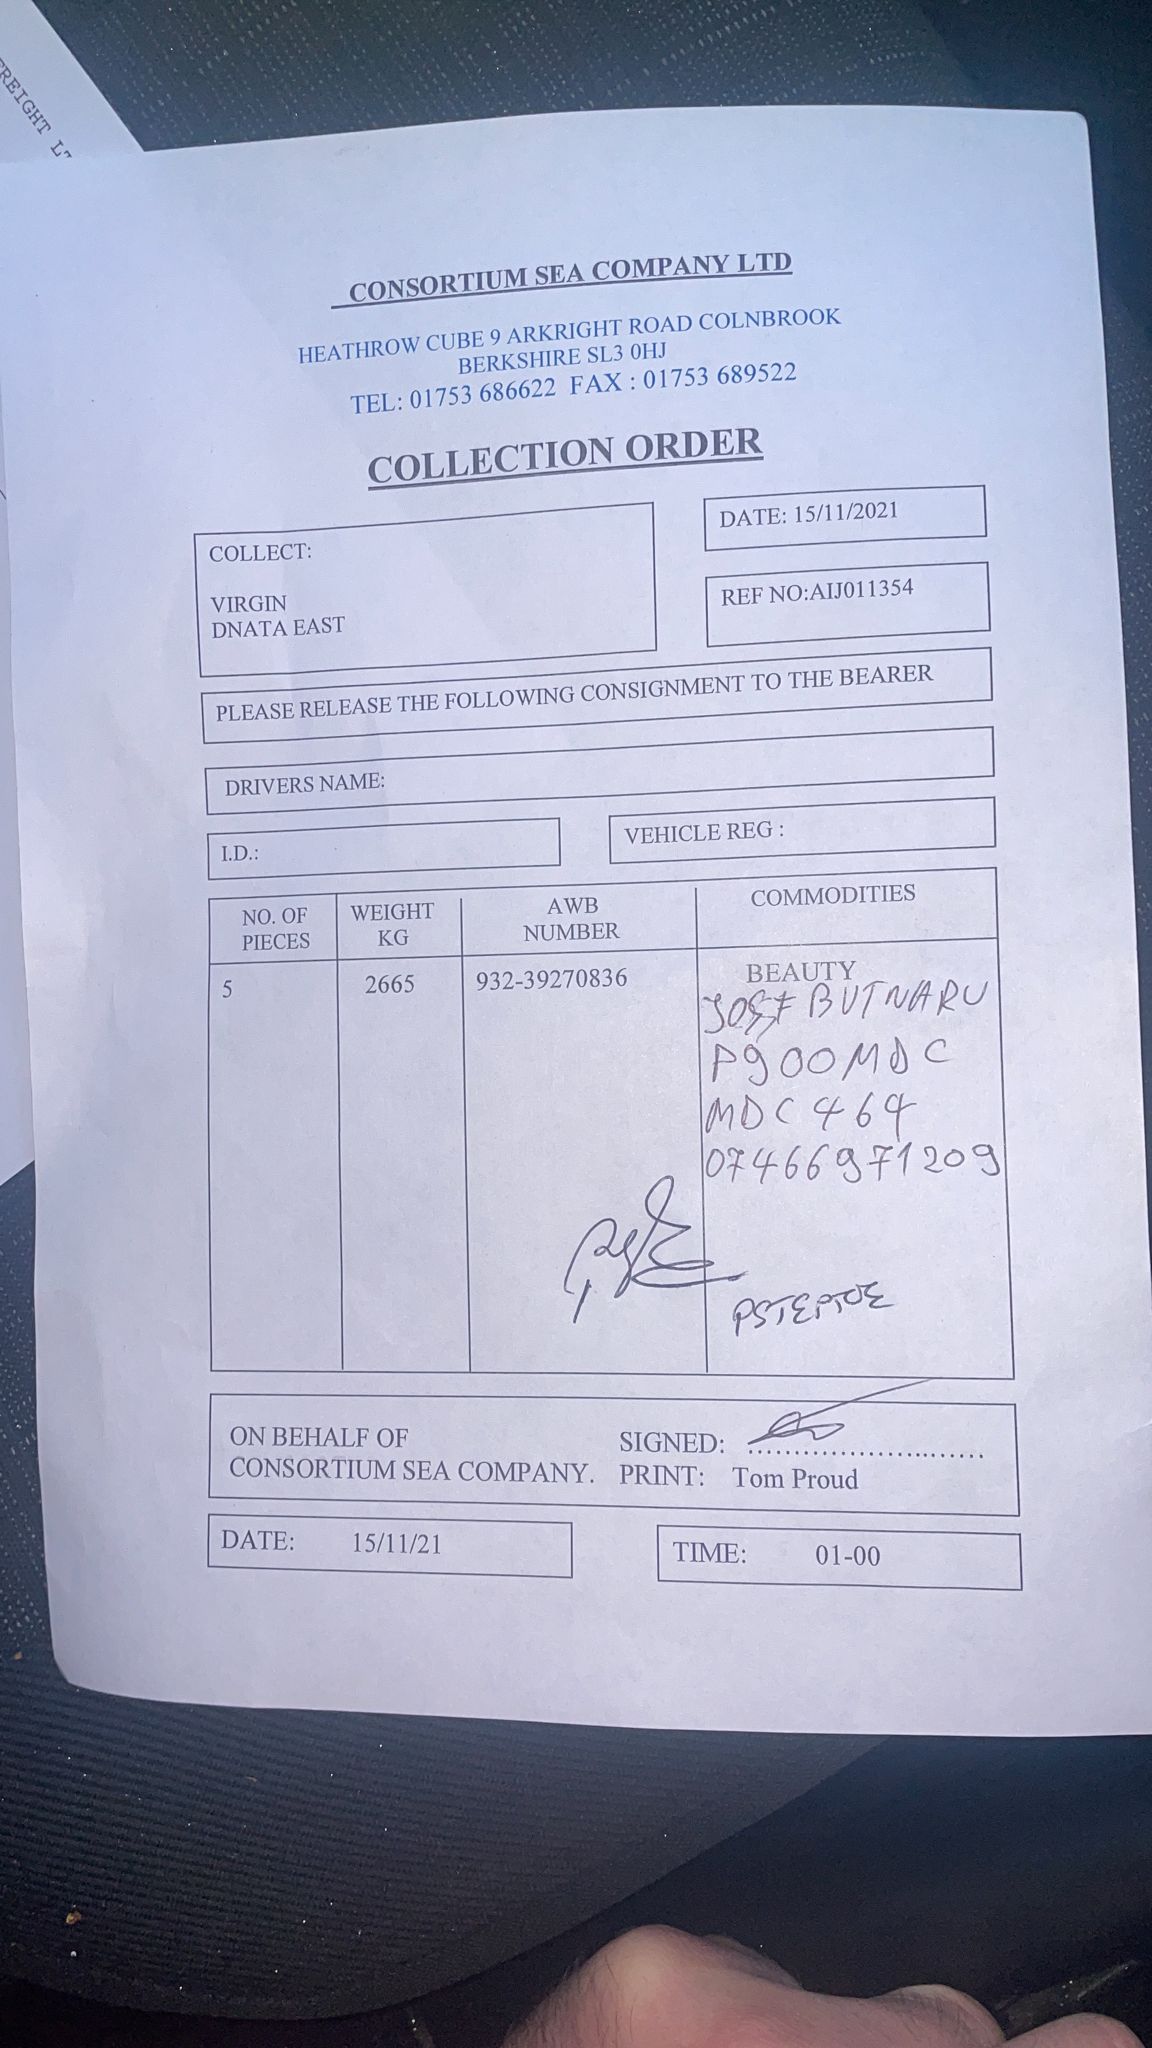 FREIGHT LT
CONSORTIUM SEA COMPANY LTD
HEATHROW CUBE 9 ARKRIGHT ROAD COLNBROOK
BERKSHIRE SL3 0HJ
TEL: 01753 686622 FAX : 01753 689522
COLLECTION ORDER
COLLECT:
VIRGIN
DNATA EAST
DATE: 15/11/2021
REF NO:AIJ011354
PLEASE RELEASE THE FOLLOWING CONSIGNMENT TO THE BEARER
DRIVERS NAME:
I.D.:
VEHICLE REG :
NO. OF
PIECES
WEIGHT
KG
AWB
NUMBER
COMMODITIES
5
2665
932-39270836
BEAUTY
BUTNARU
P900MDC
MDC 464
07466971209
ON BEHALF OF
CONSORTIUM SEA COMPANY.
SIGNED:
PRINT: Tom Proud
DATE: 15/11/21
TIME: 01-00